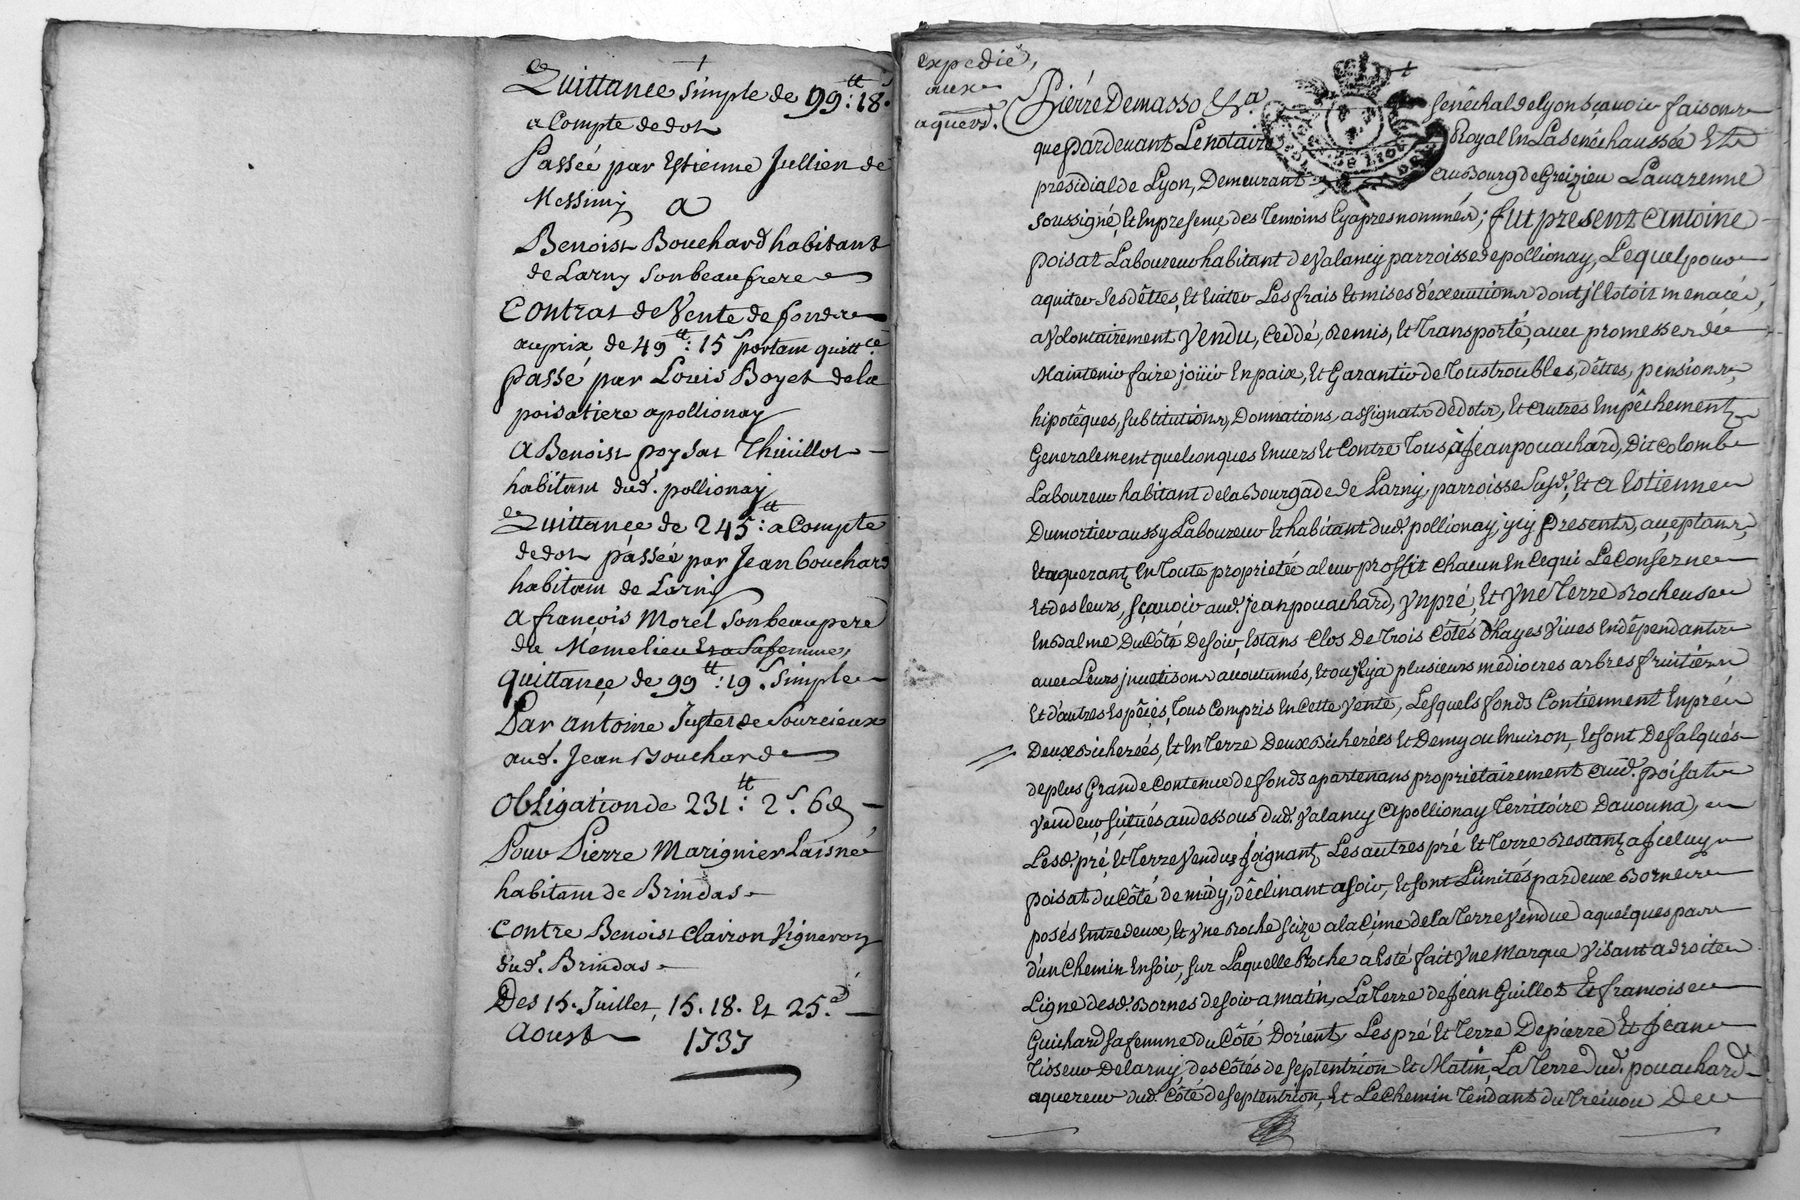 +
Quittance simple de 99tt: 18s
a Compte de dot
Passée par Estienne Jullien de
Messimy a
Benoist Bouchard habitant
de Larny son beaufrere
Contrat de Vente de fondz
au prix de 49tt: 15s portant quittce
passé par Louis Boyet de la
poisatiere a pollionay
A Benoist poysat Thuillot
habitant dud. pollionay
Quittance de 245tt: a Compte
de dot passée par Jean bouchard
habitant de Larny
A françois Morel son beaupere
de Memelieu Et a Sa femme,
quittance de 99tt: 19s. Simple
Par antoine Juster de Sourcieux
aud. Jean Bouchard
Obligation de 231tt: 2s. 6d
Pour Pierre Marignier Laisné
habitant de Brindas
Contre Benoist Clairon Vigneron
dud. Brindas
Des 15. Juillet, 15. 18. Et 25.e
Aoust 1737
expedié,
aux
aquerd.
+
Pierre Demasso &a. Senêchal de Lyon Sçavoir faisons
que pardevant Le notaire Royal En La senéchaussée Et
presidial de Lyon, Demeurant au Bourg de Greizieu Lavarenne
soussigné, Et En presence des Temoins Cy apres nommés; fut present Antoine
poisat Laboureur habitant de Valancy parroisse de pollionay, Lequel pour
aquiter ses dêttes, Et Eviter Les frais Et mises d'executions dont jl Estoit menacé,
a Volontairement Vendu, Ceddé, Remis, Et Transporté, avec promesse de
Maintenir faire joüir En paix, Et Garantir de Tous troubles, dêttes, pensions,
hipotêques, substitutions, Donnations, assignats de dots, Et autres Empêchement
Generalement quelconques Envers Et Contre Tous, à Jean pouachard, Dit Colomb
Laboureur habitant de la Bourgade de Larny, parroisse Susd. Et a Estienne
Dumortier aussy Laboureur Et habitant dud. pollionay, jcy presents, acceptans,
Et aquerant En Toute proprieteé a leur proffit Chacun En Ce qui Le Conserne
Et des leurs, sçavoir aud. jean pouachard, Vn pré, Et Vne Terre Rocheuse
En Balme Du Côté De soir, Estans Clos De Trois Côtés d'hayes Vives En dêpendants
avec Leurs jnvetisons accoutumés, Et ou jl y a plusieurs médiocres arbres fruitiers
Et d'autres Espêces, Tous Compris En Cette Vente, Lesquels fonds Contiennent En pré
Deux Bicherées, Et En Terre Deux Bicherées Et Demy ou Environ, Et sont Defalqués
de plus Grande Contenue de fonds apartenans proprietairement Aud. poisat
Vendeur situés au dessous dud. Valancy A pollionay Territoire Davouna,
Lesd. pré, Et Terre Vendus Joignant, Les autres pré Et Terre Restantz a Jceluy
poisat du Côté de midy, déclinant a soir, Et sont Limités par deux Bornes
posés Entre deux, Et Vne Roche size a la Cime de la Terre Vendue a quelques pas
d'un Chemin En soir, sur Laquelle Roche a Esté fait Vne Marque Visant a droite
Ligne desd. Bornes de soir a matin, La Terre de Jean Guillot Et francoise
Guichard sa femme du Côté D'orient, Les pré Et Terre De pierre Et Jean
Tisseur De larny, des Côtés de septentrion Et Matin, La Terre Dud. pouachard
aquereur dud. Côté de septentrion, Et Le Chemin Tendant du Treivou De